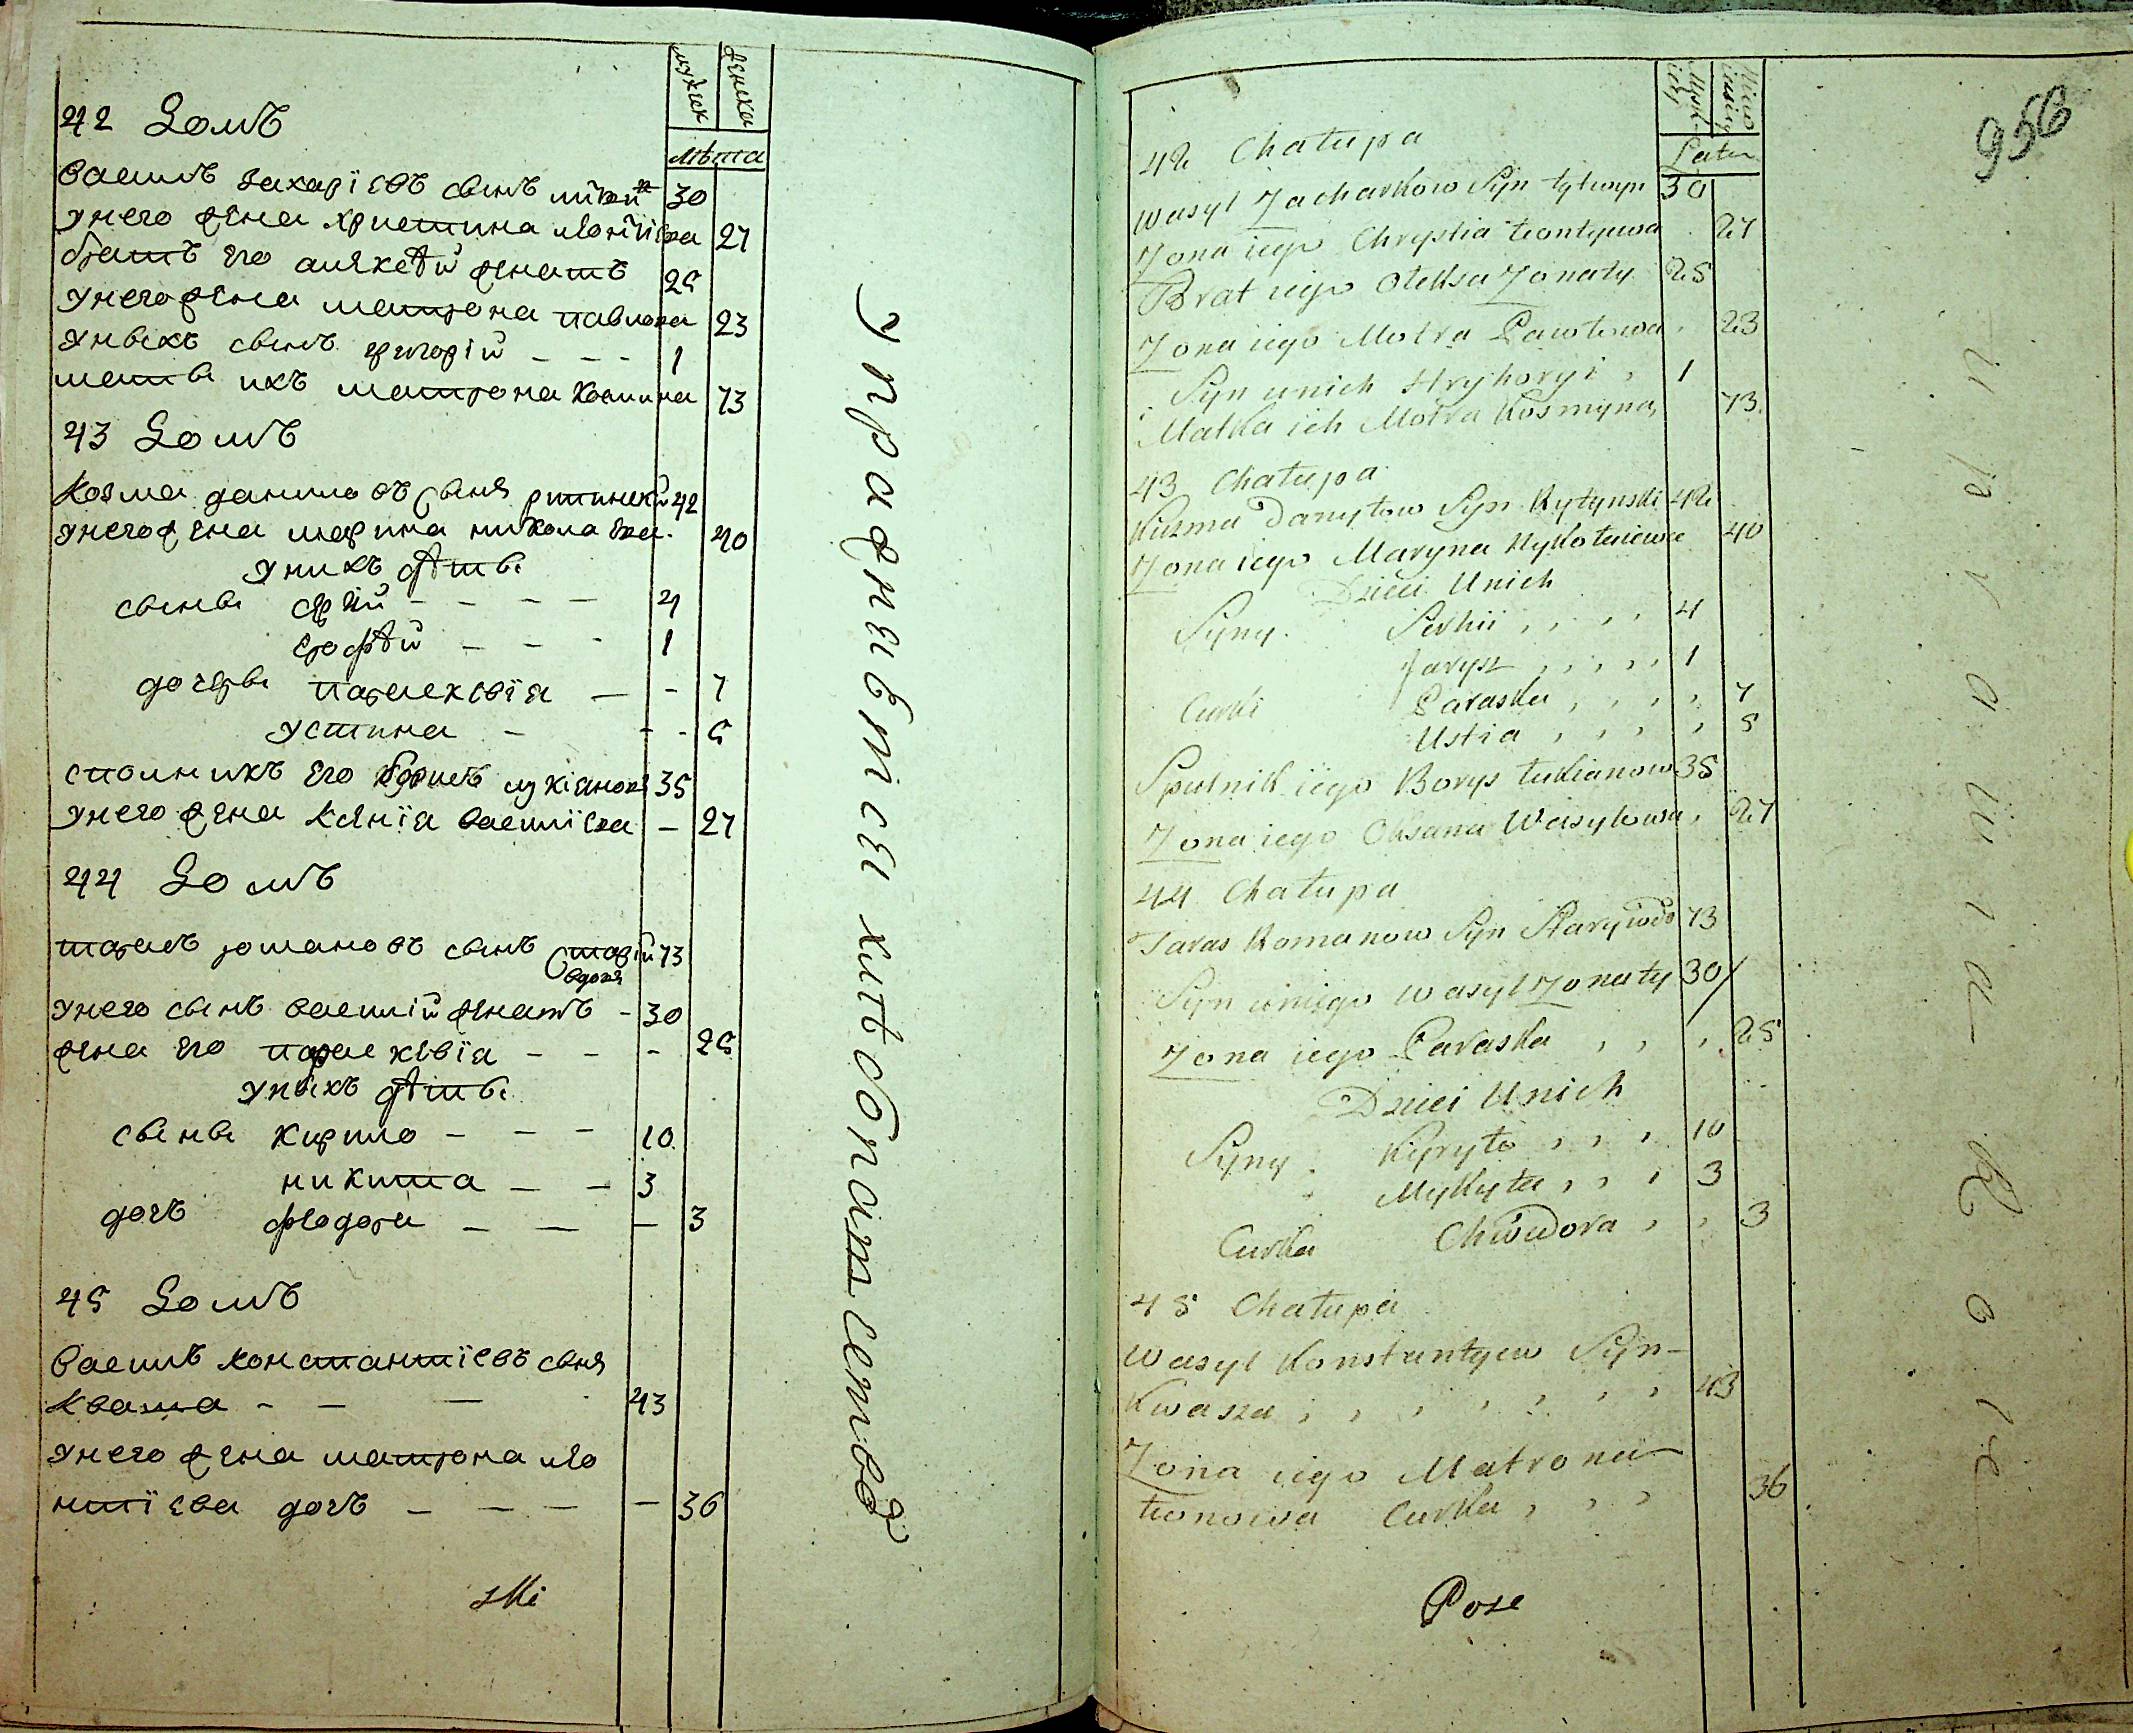 мужек
женска
лѣта
42 Домъ
Василъ захарiевъ сынъ
30
унего жена христина леонтiева
27
братъ его алексѣй женатъ
25
унего жена матрона павлова
23
уныхъ сынъ григорiй - - -
1
мать ихъ матрона космина
73
43 Домъ
козма даниловъ сынъ ритинскй
42
унего жена марина николаева
40
унихъ дѣты
сыны сергiй - - - -
4
ерофѣй - - -
1
дочеры параскевiя - -
7
устина - - -
5
спольникъ его борисъ лукiяновъ
35
унего жена ксенiя василiева -
27
44 Домъ
тарасъ романовъ сынъ старiй
73
вдовя
унего сынъ василiй женатъ -
30
жена его параскевiя - - -
25
уныхъ дѣты
сыны кирило - - -
10
никита - -
3
дочъ феодора - - -
3
45 Домъ
Василъ константiевъ сынъ
кваша - - -
43
унего жена матрона лео
нтiева дочъ - - - -
36
упражнъвтсеи
хлѣбопатсетвоў
956
Męsk
iey
Lata
42 Chałupa
Wasyl Zacharkow Syn Łytwyn
30
Zona iego Chrystia Leontyewa
27
Brat iego Oleksa Zonaty
25
Zona iego Motra Pawłowa
23
Syn unich Hryhoryi
1
Matka ich Motra Kosmyna
73
43 Chałupa
Kuzma Danyłow Syn Rytynski
42
Zona iego Maryna Mykołaiewa
40
Dzieci Unich
Syny Serhii
4
Jarysz
1
Curki Paraska
7
Ustia
5
Spulnik iego Borys Łukianow
35
Zona iego Oksana Wasylowa
27
44 Chałupa
Taras Romanow Syn Staryi wdo
73
Syn uniego Wasyl Zonaty
30
Zona iego Paraska
25
Dzieci Unich
Syny Kyryło
10
Mykyta
3
Curka Chwedora
3
45 Chałupa
Wasyl Konstantyew Syn -
Kwasza
43
Zona iego Matrona
Leonowa Curka
36
Pose
uprawuia Role